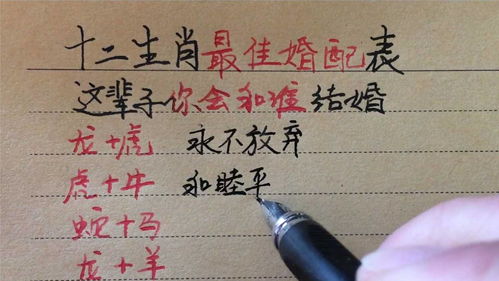 十二生肖最佳婚配表
这辈子你会和谁结婚
龙+虎 永不放弃
虎+牛 和睦平
蛇+马
龙+羊